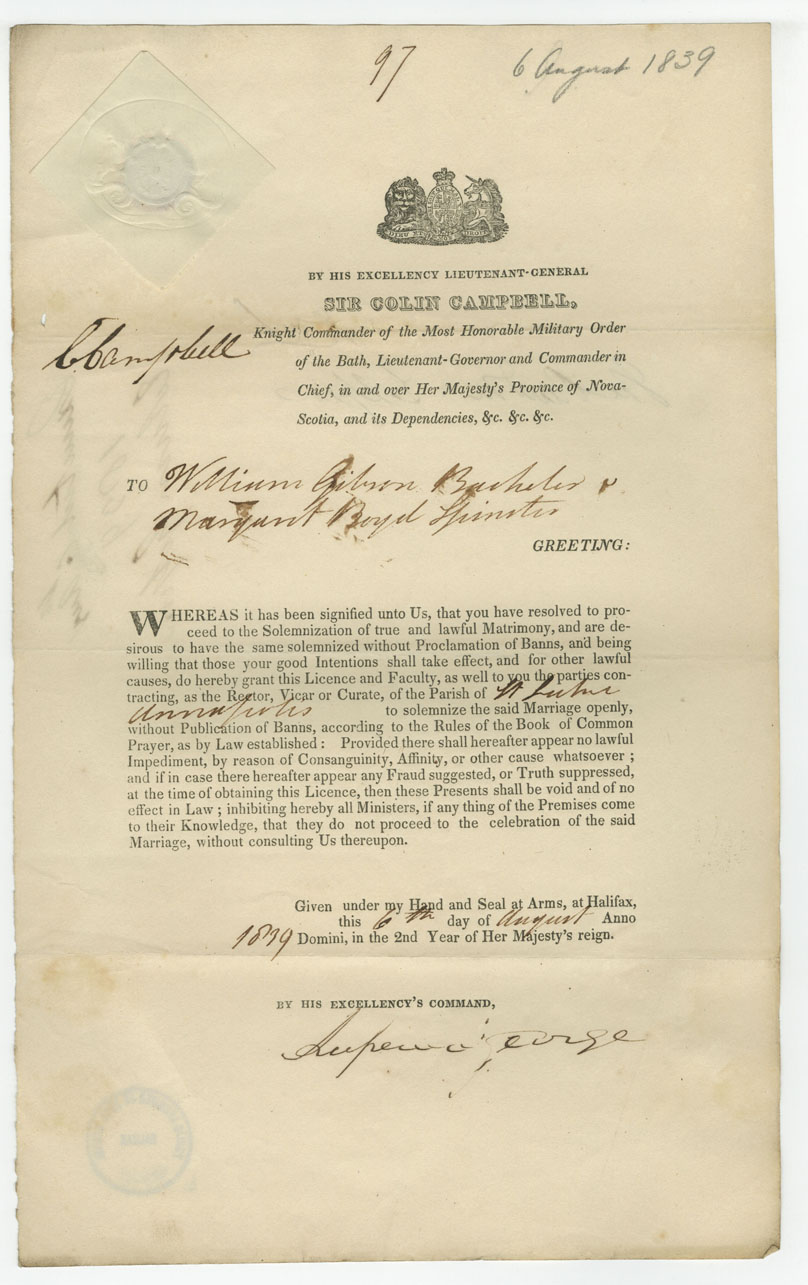 97
6 August 1839
BY HIS EXCELLENCY LIEUTENANT-GENERAL
SIR COLIN CAMPBELL,
CCampbell
Knight Commander of the Most Honorable Military Order
of the Bath, Lieutenant-Governor and Commander in
Chief, in and over Her Majesty's Province of Nova-
Scotia, and its Dependencies, &c. &c. &c.
TO William Gibson Bachelor &
Margaret Boyd Spinster
GREETING:
WHEREAS it has been signified unto Us, that you have resolved to pro-
ceed to the Solemnization of true and lawful Matrimony, and are de-
sirous to have the same solemnized without Proclamation of Banns, and being
willing that those your good Intentions shall take effect, and for other lawful
causes, do hereby grant this Licence and Faculty, as well to you the parties con-
tracting, as the Rector, Vicar or Curate, of the Parish of St Luke
Annapolis to solemnize the said Marriage openly,
without Publication of Banns, according to the Rules of the Book of Common
Prayer, as by Law established: Provided there shall hereafter appear no lawful
Impediment, by reason of Consanguinity, Affinity, or other cause whatsoever;
and if in case there hereafter appear any Fraud suggested, or Truth suppressed,
at the time of obtaining this Licence, then these Presents shall be void and of no
effect in Law; inhibiting hereby all Ministers, if any thing of the Premises come
to their Knowledge, that they do not proceed to the celebration of the said
Marriage, without consulting Us thereupon.
Given under my Hand and Seal at Arms, at Halifax,
this 6th day of August Anno
1839 Domini, in the 2nd Year of Her Majesty's reign.
BY HIS EXCELLENCY'S COMMAND,
George